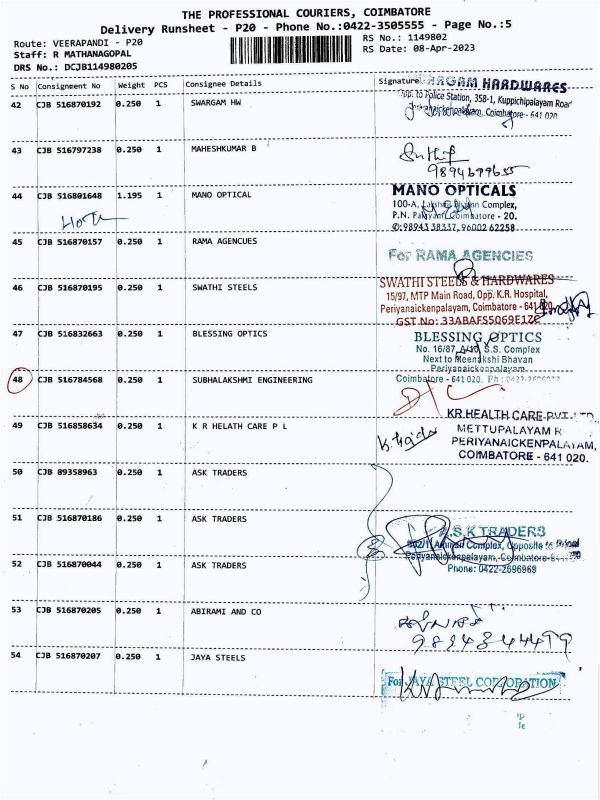 THE PROFESSIONAL COURIERS, COIMBATORE
Delivery Runsheet - P20 - Phone No.:0422-3505555 - Page No.:5
Route: VEERAPANDI - P20
RS No.: 1149802
Staff: R MATHANAGOPAL
RS Date: 08-Apr-2023
DRS No.: DCJB114980205
S No Consignment No Weight PCS Consignee Details Signature
42 CJB 516870192 0.250 1 SWARGAM HW
HARDWARES
to Police Station, 358-1, Kuppichipalayam Road
Coimbatore - 641 020
43 CJB 516797238 0.250 1 MAHESHKUMAR B
44 CJB 516801648 1.195 1 MANO OPTICAL
MANO OPTICALS
100-A, Lakshmi Bhavan Complex,
P.N. Palayam Coimbatore - 20.
✆:98943 38337, 96002 62258
45 CJB 516870157 0.250 1 RAMA AGENCUES
For RAMA AGENCIES
46 CJB 516870195 0.250 1 SWATHI STEELS
SWATHI STEELS & HARDWARES
15/97, MTP Main Road, Opp. K.R. Hospital,
Periyanaickenpalayam, Coimbatore - 641 020.
GST No: 33ABAFS5069E1Z
47 CJB 516832663 0.250 1 BLESSING OPTICS
BLESSING OPTICS
No. 16/87, S.S. Complex
Next to Meenakshi Bhavan
Periyanaickenpalayam
Coimbatore - 641 020.
48 CJB 516784568 0.250 1 SUBHALAKSHMI ENGINEERING
D/C
49 CJB 516858634 0.250 1 K R HELATH CARE P L
KR HEALTH CARE PVT. LTD
METTUPALAYAM R
PERIYANAICKENPALAYAM,
COIMBATORE - 641 020.
50 CJB 89358963 0.250 1 ASK TRADERS
51 CJB 516870186 0.250 1 ASK TRADERS
A.S.K TRADERS
Complex, Opposite to
Periyanaickenpalayam, Coimbatore-
Phone: 0422-2696969
52 CJB 516870044 0.250 1 ASK TRADERS
53 CJB 516870205 0.250 1 ABIRAMI AND CO
54 CJB 516870207 0.250 1 JAYA STEELS
For JAYA STEEL CORPORATION